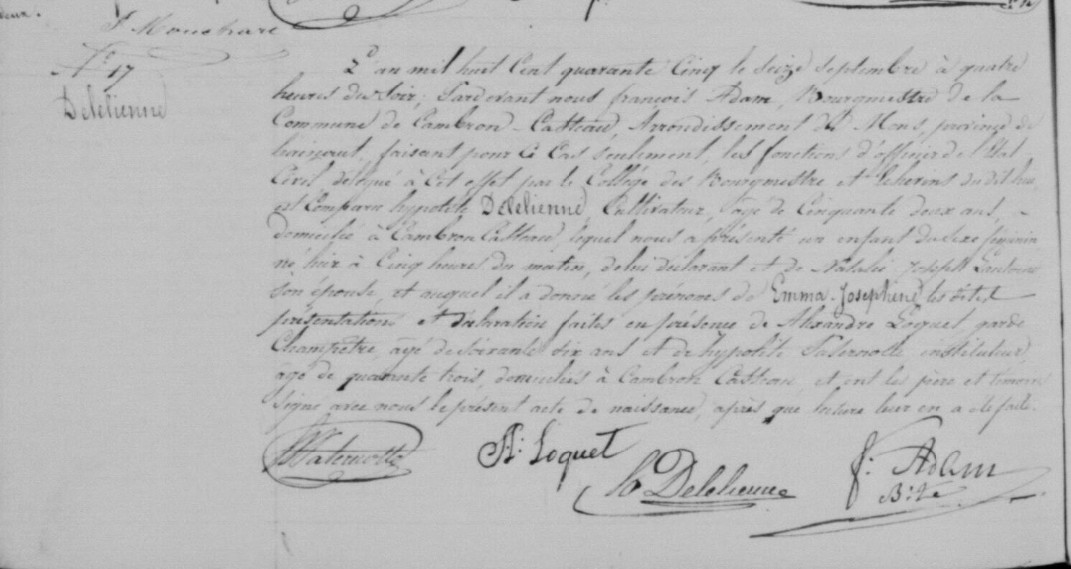 F. Mouchare
N° 17
Delelienne
L'an mil huit Cent quarante Cinq le seize septembre à quatre
heures du Soir; Pardevant nous françois Adam, Bourgmestre de la
Commune de Cambron-Casteau, Arrondissement de Mons, province de
hainaut, faisant pour Ce Cas seulement, les fonctions d'officier de l'état
Civil délégué à Cet effet par le Collège des Bourgmestre et Echevins du dit lieu,
est Comparu hypolite Delelienne, Cultivateur, âgé de Cinquante deux ans,
domicilié à Cambron Casteau, lequel nous a présenté un enfant du sexe féminin
né hier à Cinq heure du matin, de lui déclarant et de Natalie Joseph
son épouse, et auquel il a donné les prénoms de Emma-Josephine, les dites
présentation et déclaration faites en présence de Alexandre Loquet garde
Champêtre âgé de soixante dix ans et de hypolite Paternotte instituteur,
âgé de quarante trois, domiciliés à Cambron Casteau, et ont les père et témoins
signé avec nous le présent acte de naissance, après que lecture leur en a été faite.
Paternotte
A: Loquet
h Delelienne
f: Adam